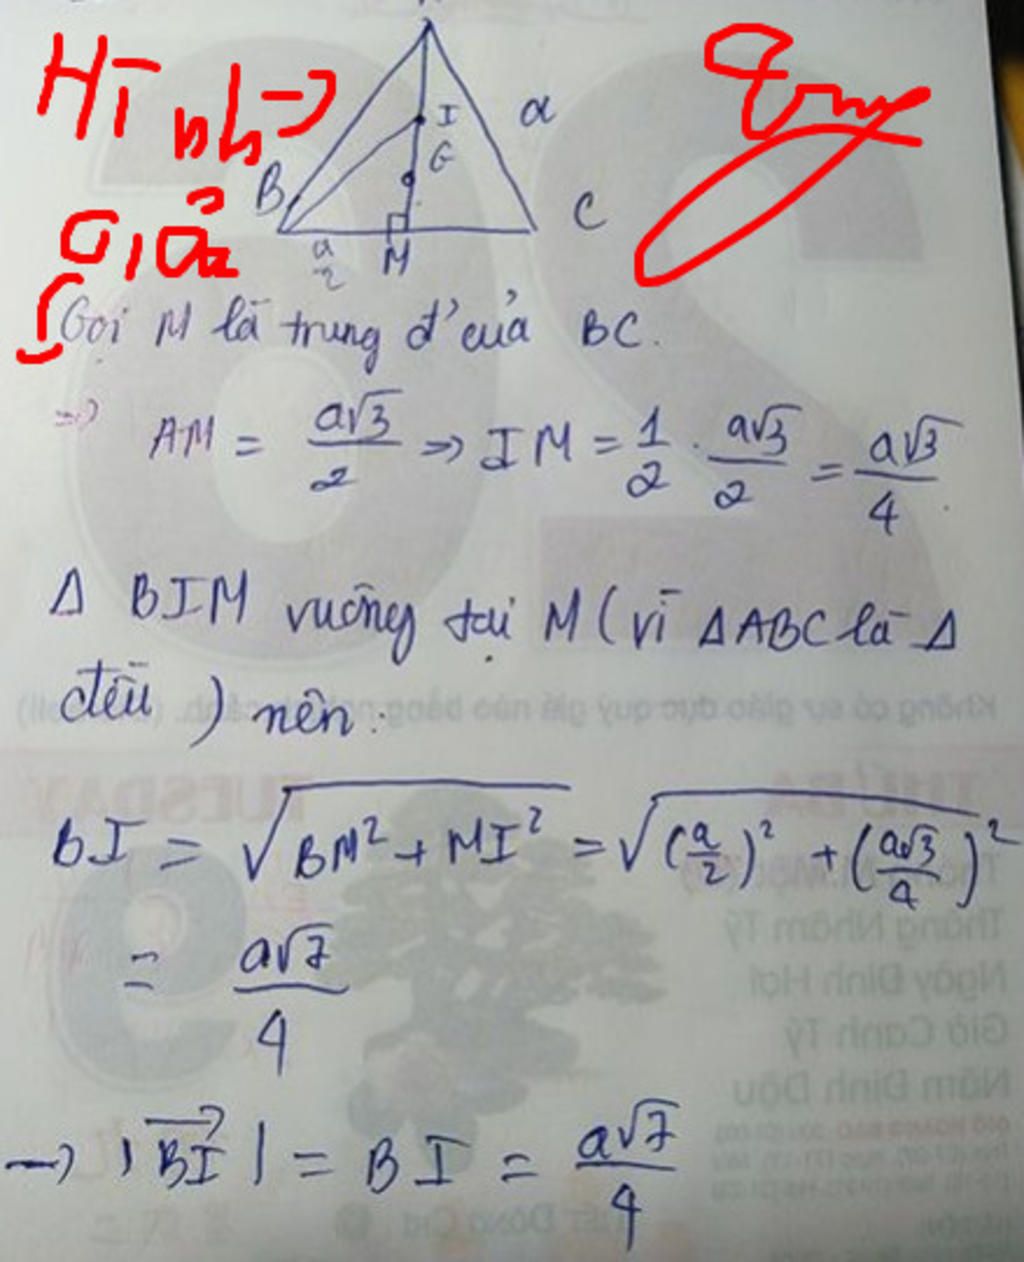 HÌnh->
Giải
A
I
a
G
B
C
a/2
M
Gọi M là trung đ' của BC.
=> AM = a√3/2 => IM = 1/2 . a√3/2 = a√3/4.
Δ BIM vuông tại M (vì ΔABC là Δ
đều) nên:
BI = √(BM² + MI²) = √((a/2)² + (a√3/4)²)
= a√7/4
→ |BI→| = BI = a√7/4
Không có sự giáo dục quý giá nào bằng nghịch cảnh.
THỨ BA
TUESDAY
Tháng Nhâm Tý
Ngày Đinh Hợi
Giờ Canh Tý
Năm Đinh Dậu
26
9